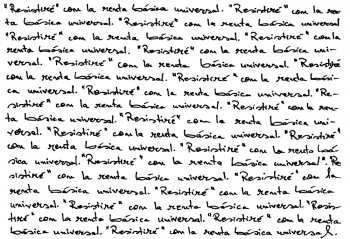 "Resistiré" con la renta básica universal. "Resistiré" con la ren
ta básica universal. "Resistiré" con la renta básica universal
"Resistiré" con la renta básica universal. "Resistiré" con la
renta básica universal. "Resistiré" con la renta básica uni-
versal. "Resistiré" con la renta básica universal. "Resistiré
con la renta básica universal. "Resistiré" con la renta bási-
ca universal. "Resistiré" con la renta básica universal. "Re-
sistiré" con la renta básica universal. "Resistiré" con la ren-
ta básica universal. "Resistiré" con la renta básica uni-
versal. "Resistiré" con la renta básica universal. "Resistiré"
con la renta básica universal. "Resistiré" con la renta bá
sica universal. "Resistiré" con la renta básica universal". Re
sistiré" con la renta básica universal. "Resistiré" con la
renta básica universal. "Resistiré" con la renta básica
universal. "Resistiré" con la renta básica universal. "Resis-
tiré" con la renta básica universal. "Resistiré" con la renta
básica universal. "Resistiré" con la renta básica universal.